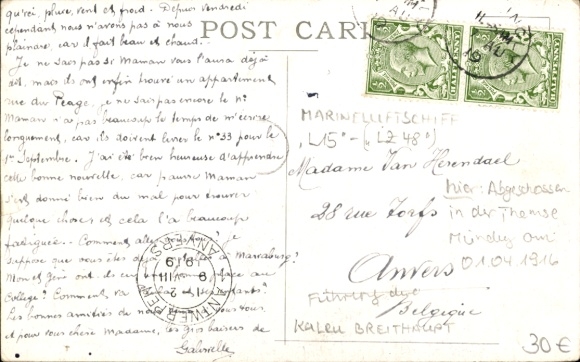 qu'ici, pluie, vent et froid. Depuis vendredi
cependant nous n'avons pas à nous
plaindre, car il fait beau et chaud.
Je ne sais pas si Maman vous l'aura déjà
dit, mais ils ont enfin trouvé un appartement
rue du Péage, je ne sais pas encore le n°
Maman n'a pas beaucoup le temps de m'écrire
longuement, car ils doivent livrer le n° 33 pour le
1er Septembre. J'ai été bien heureuse d'apprendre
cette bonne nouvelle, car pauvre Maman
s'est donné bien du mal pour trouver
quelque chose et cela l'a beaucoup
fatiguée. Comment
suppose que vous êtes déjà
Collège? Comment va
Les bonnes amitiés de nous
et pour vous chère Madame, les gros baisers de
Gabrielle
POST CARD
HALFPENNY
HALFPENNY
MARINELUFTSCHIFF
"L15" - ("LZ 48")
Madame Van Herendael
hier: Abgeschossen
28 rue Torfs
in der Themse
Mündung am
Anvers
01.04.1916
Belgique
KALEU BREITHAUPT
30€
ANTWERPEN
ANVERS